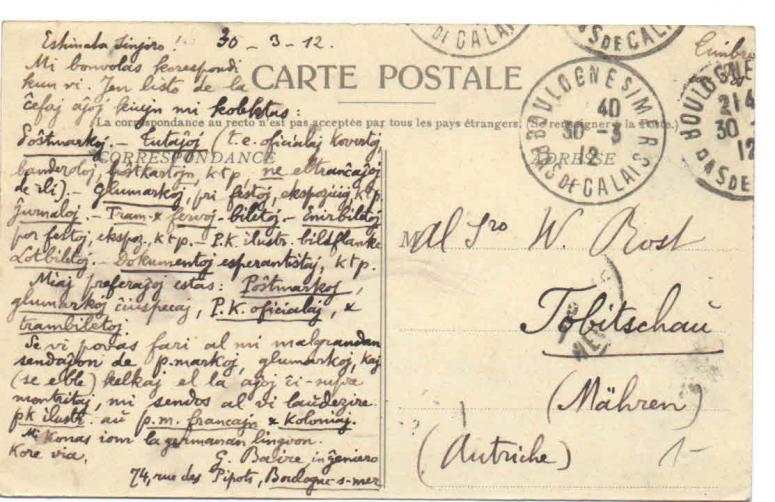 Estimata Sinjoro! 30-3-12.
Mi bonvolas korespondi
kun vi. Jen listo de la
ĉefaj aĵoj kiujn mi kolektas:
CARTE POSTALE
La correspondance au recto n'est pas acceptée par tous les pays étrangers. (Se renseigner à la Poste.)
CORRESPONDANCE
ADRESSE
Poŝtmarkoj. - Tutaĵoj (t.e. oficialaj kovertoj,
banderoloj, poŝtkartojn, ktp ne eltranĉaĵoj
de ili). - Glumarkoj, pri festoj, ekspozicioj, ktp
Ĵurnaloj. - Tram- & fervoj-biletoj. - enirbiletoj
por festoj, ekspoz., ktp. - P.K. ilustr. bildflanke
Lotbiletoj. - Dokumentoj esperantistaj, ktp.
Miaj preferaĵoj estas: Poŝtmarkoj,
glumarkoj ĉiuspecaj, P.K. oficialaj, &
trambiletoj.
Se vi povas fari al mi malgrandan
sendaĵon de p.markoj, glumarkoj, kaj
(se eble) kelkaj el la aĵoj ĉi-supre
montritaj, mi sendos al vi laŭdezire
pk ilustr. aŭ p.m. francajn & Koloniaj.
Mi konas iom la germanan lingvon.
Kore via,
G. Baire inĝeniero
74, rue des Pipots, Boulogne-s-mer
M al Sro W. Rost
Tobitschau
(Mähren)
(Autriche)
BOULOGNE S/MER
40
30-3
12
PAS DE CALAIS
BOULOGNE
214
30
12
PAS DE
DE CALAIS
PAS DE CAL